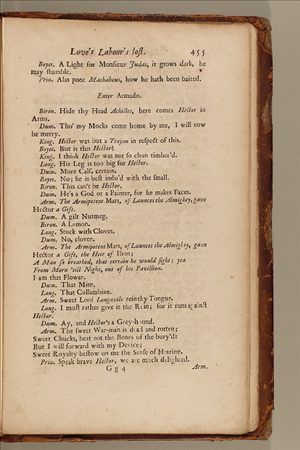 Love's Labour's lost. 455
Boyet. A Light for Monsieur Judas, it grows dark, he
may stumble.
Prin. Alas poor Machabeus, how he hath been baited.
Enter Armado.
Biron. Hide thy Head Achilles, here comes Hector in
Arms.
Dum. Tho' my Mocks come home by me, I will now
be merry.
King. Hector was but a Trojan in respect of this.
Boyet. But is this Hector?
King. I think Hector was not so clean timber'd.
Long. His Leg is too big for Hector.
Dum. More Calf, certain.
Boyet. No; he is best indu'd with the small.
Biron. This can't be Hector.
Dum. He's a God or a Painter, for he makes Faces.
Arm. The Armipotent Mars, of Launces the Almighty, gave
Hector a Gift.
Dum. A gilt Nutmeg.
Biron. A Lemon.
Long. Stuck with Cloves.
Dum. No, cloven.
Arm. The Armipotent Mars, of Launces the Almighty, gave
Hector a Gift, the Heir of Ilion;
A Man so breathed, that certain he would fight; yea
From Morn 'till Night, out of his Pavillion.
I am that Flower.
Dum. That Mint.
Long. That Cullambine.
Arm. Sweet Lord Longavile rein thy Tongue.
Long. I must rather give it the Rein; for it runs against
Hector.
Dum. Ay, and Hector's a Grey-hound.
Arm. The sweet War-man is dead and rotten;
Sweet Chucks, beat not the Bones of the bury'd:
But I will forward with my Device;
Sweet Royalty bestow on me the Sense of Hearing.
Prin. Speak brave Hector, we are much delighted.
G g 4 Arm.